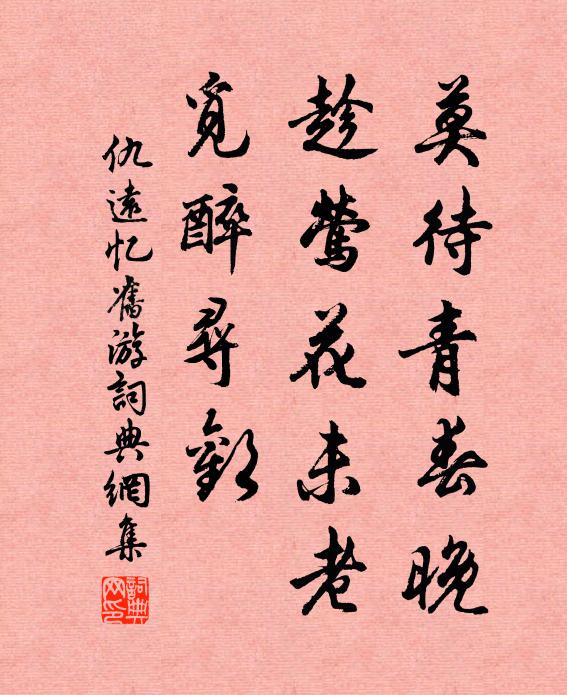 莫待青春晚
趁鶯花未老
覓醉尋歡
仇遠忆舊游詞典網集
詞典网印